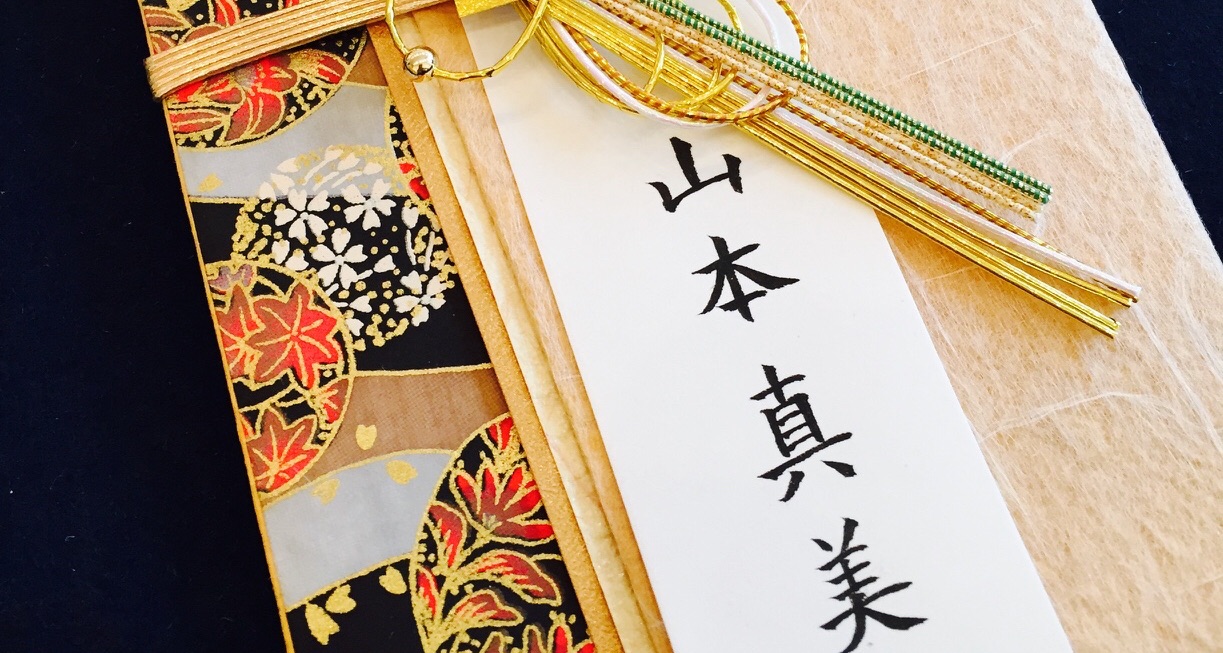 山本真美